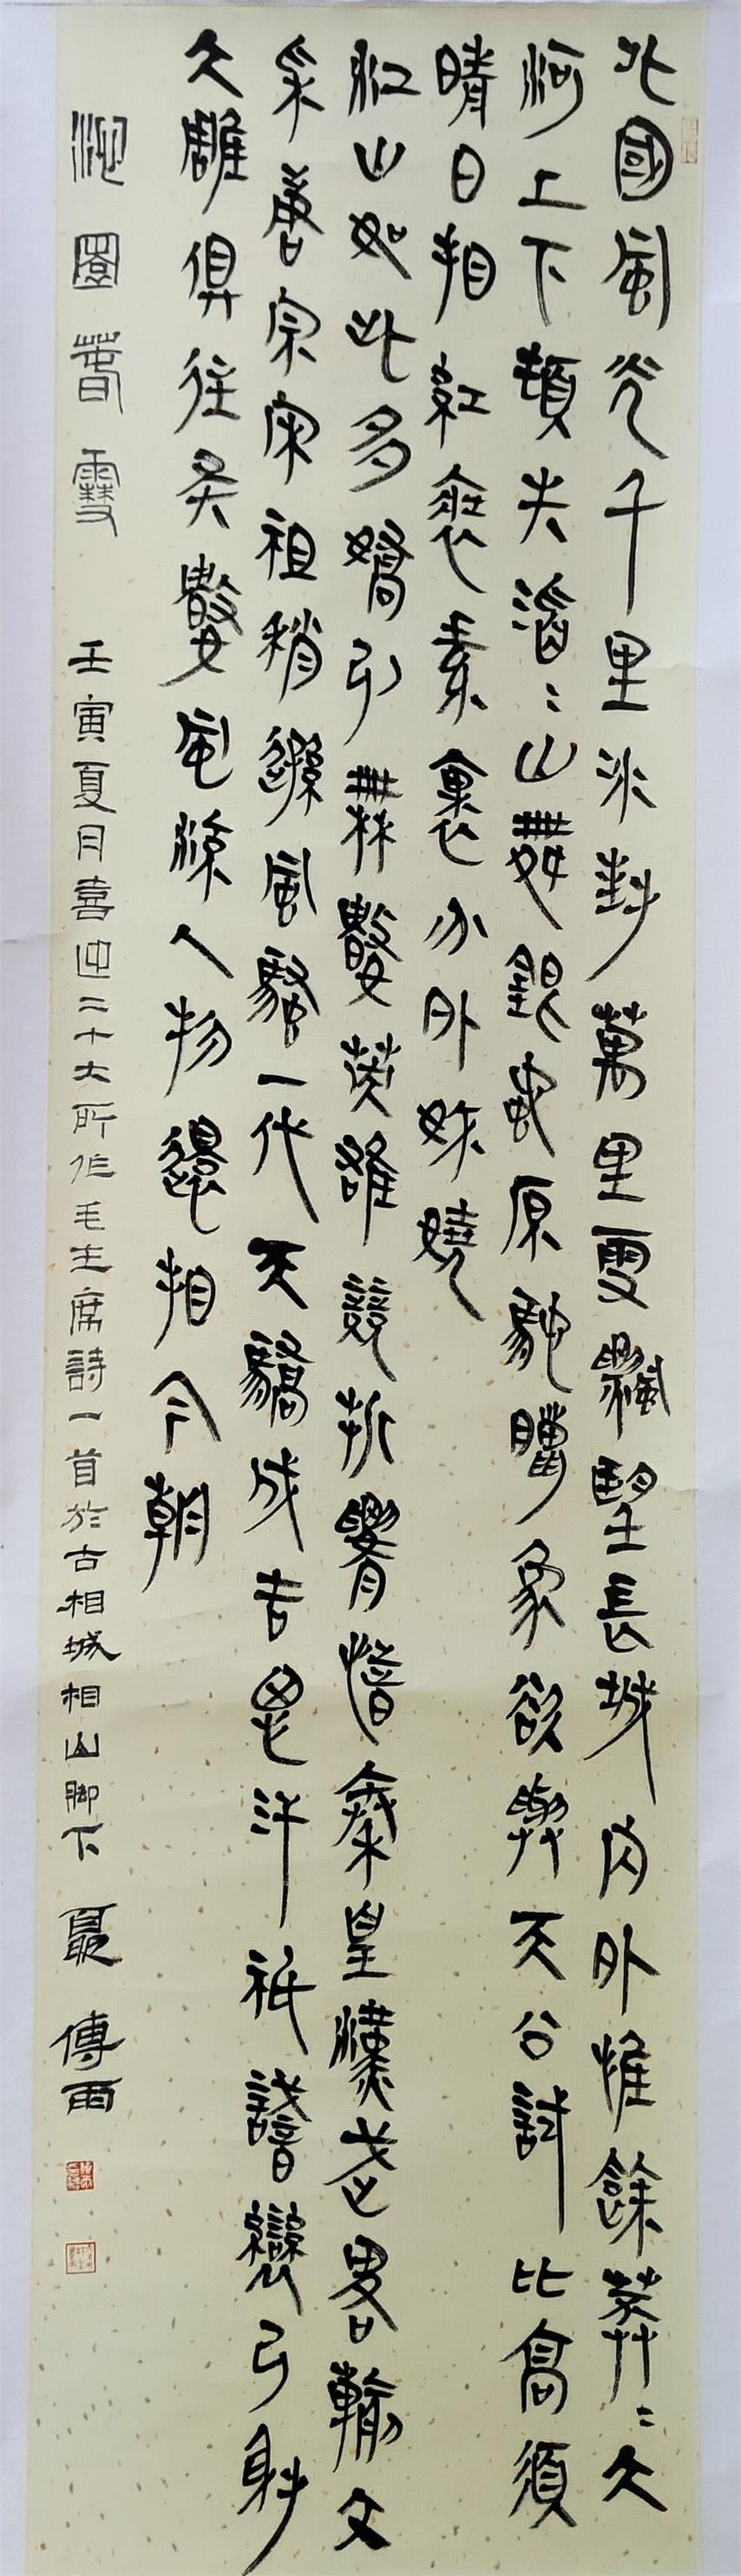 北國風光千里冰封萬里雪飄望長城內外惟餘莽〻大
河上下頓失滔〻山舞銀蛇原馳臘象欲與天公試比高須
晴日相紅裹素裹分外妖嬈
江山如此多嬌引無數英雄競折腰惜秦皇漢武略輸文
采唐宗宋祖稍遜風騷一代天驕成吉思汗祇識彎弓射
大雕俱往矣數風流人物還相今朝
沁園春雪 壬寅夏月喜迎二十大所作毛主席詩一首於古相城相山腳下 聶傳雨